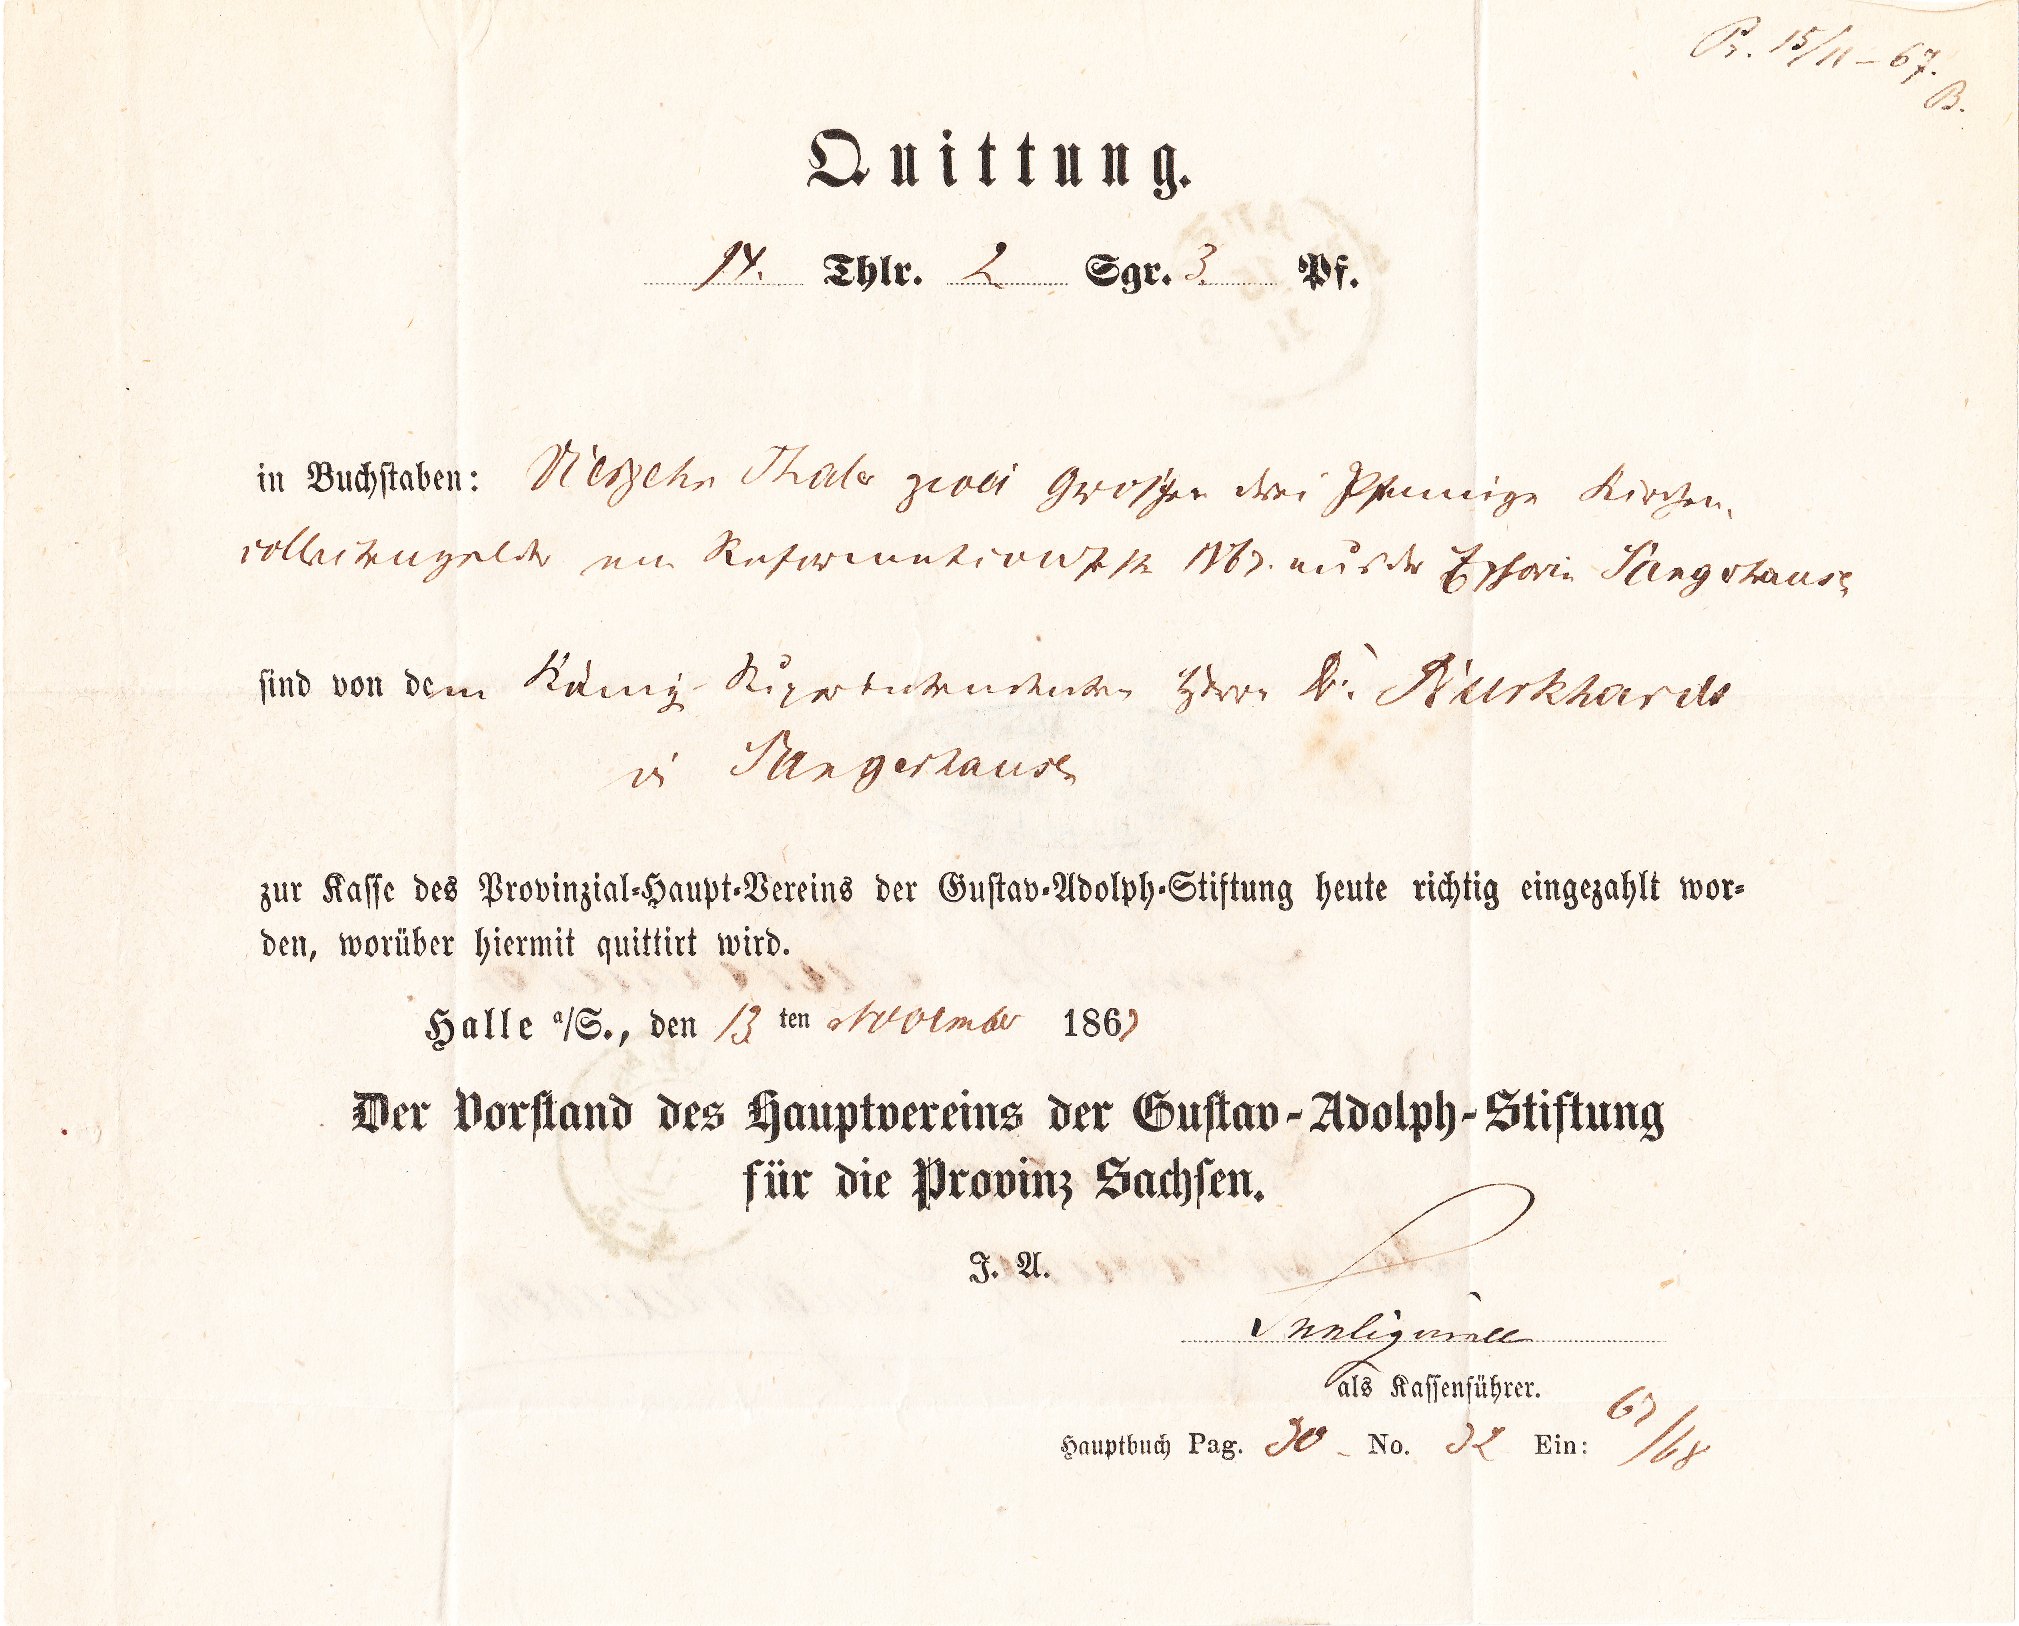 Pr. 15/11–67.
B.
Quittung.
14. Thlr. 2 Sgr. 3. Pf.
in Buchstaben: Vierzehn Thaler zwei Groschen drei Pfennige Kirchen-
collectengelder am Reformationsfeste 1867. aus der Ephorie Sangerhausen
sind von dem Königl. Superintendenten Herrn Dr. Burkhardt
in Sangerhausen
zur Kasse des Provinzial-Haupt-Vereins der Gustav-Adolph-Stiftung heute richtig eingezahlt wor-
den, worüber hiermit quittirt wird.
Halle a/S., den 13 ten November 1867
Der Vorstand des Hauptvereins der Gustav-Adolph-Stiftung
für die Provinz Sachsen.
J. A.
als Kassenführer.
Hauptbuch Pag. 30 No. 32 Ein: 67/68